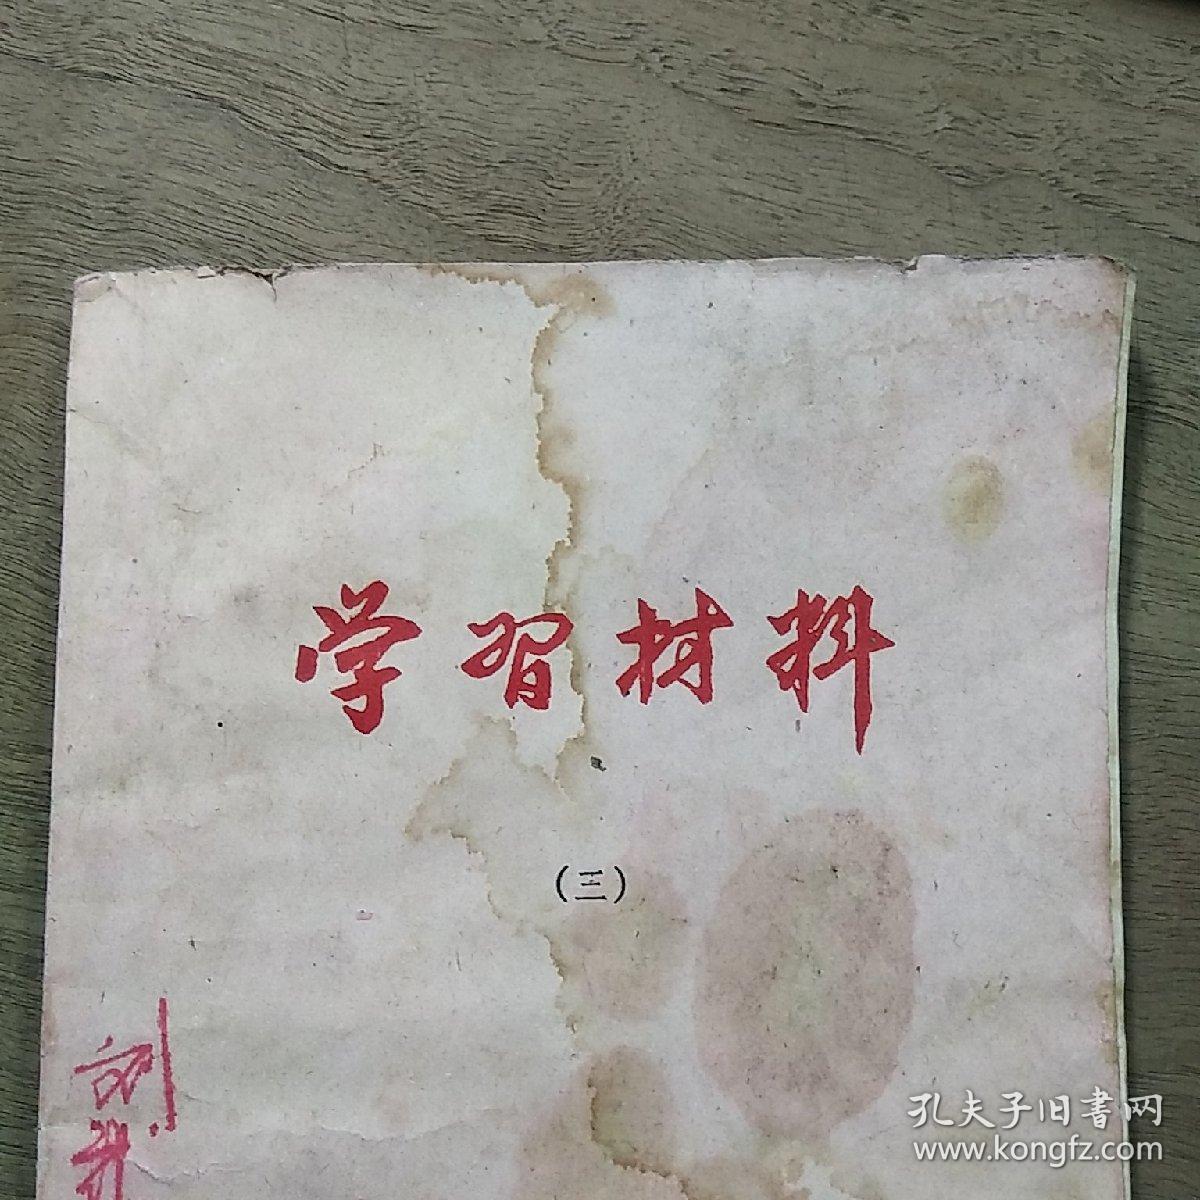 学习材料
(三)
孔夫子旧書网
www.kongfz.com